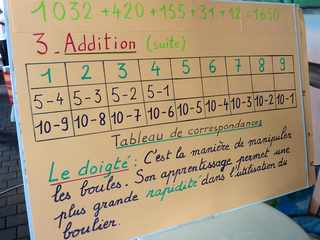 1032 + 420 + 155 + 31 + 12 = 1650
3_Addition (suite)
1 2 3 4 5 6 7 8 9
5-4 5-3 5-2 5-1
10-9 10-8 10-7 10-6 10-5 10-4 10-3 10-2 10-1
Tableau de correspondances
Le doigté : C'est la manière de manipuler
les boules. Son apprentissage permet une
plus grande rapidité dans l'utilisation du
boulier.